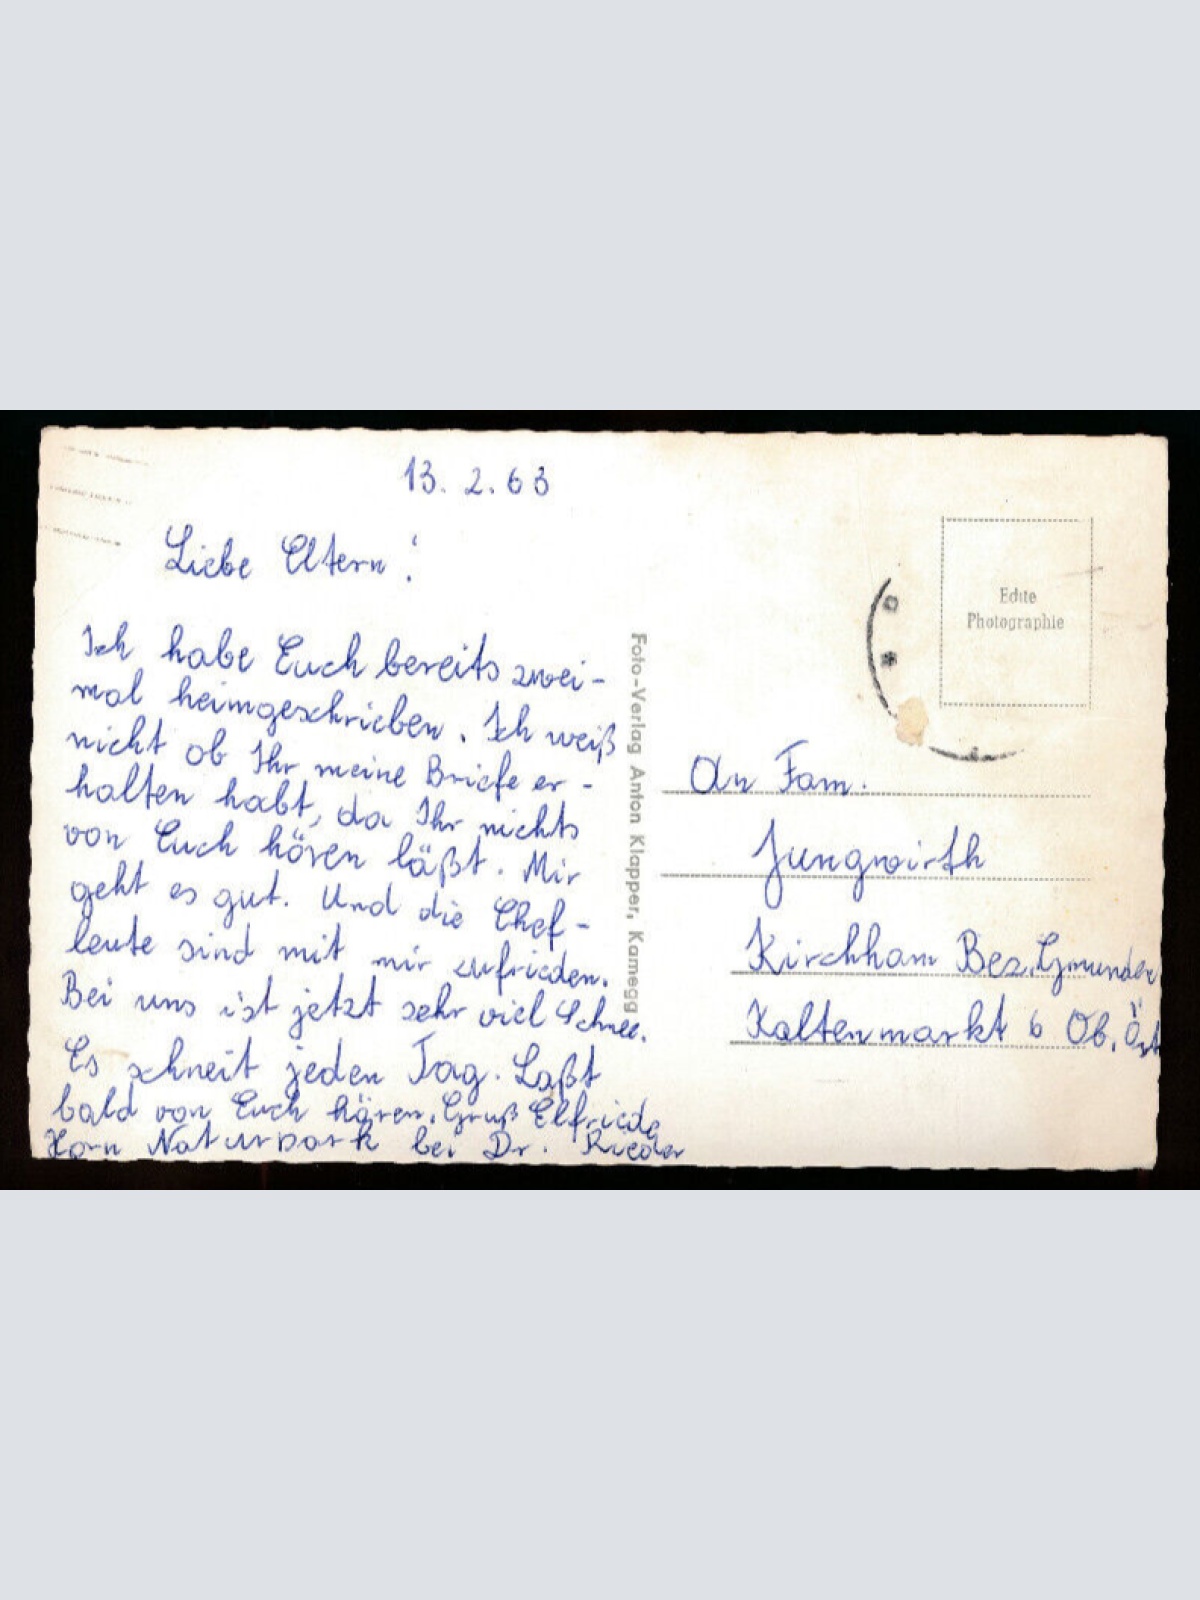 13. 2. 63
Liebe Eltern!
Ich habe Euch bereits zwei-
mal heimgeschrieben. Ich weiß
nicht ob Ihr meine Briefe er-
halten habt, da Ihr nichts
von Euch hören läßt. Mir
geht es gut. Und die Chef-
leute sind mit mir zufrieden.
Bei uns ist jetzt sehr viel Schnee.
Es schneit jeden Tag. Laßt
bald von Euch hören. Gruß Elfriede
Horn Naturpark bei Dr. Rieder
Foto-Verlag Anton Klapper, Kamegg
Edite
Photographie
An Fam.
Jungwirth
Kirchham Bez. Gmunden
Kaltenmarkt 6 Ob. Öst